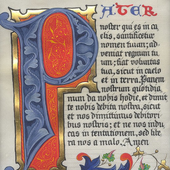 PATER
noster qui es in cæ
lis, sanctificetur
nomen tuum; ad=
veniat regnum tu
um; fiat voluntas
tua, sicut in cælo
et in terra. Panem
nostrum quotidia,
num da nobis hodie, et dimit
te nobis debita nostra, sicut
et nos dimittimus debitori
bus nostris; et ne nos inducas
in tentationem, sed libe
ra nos a malo. Amen